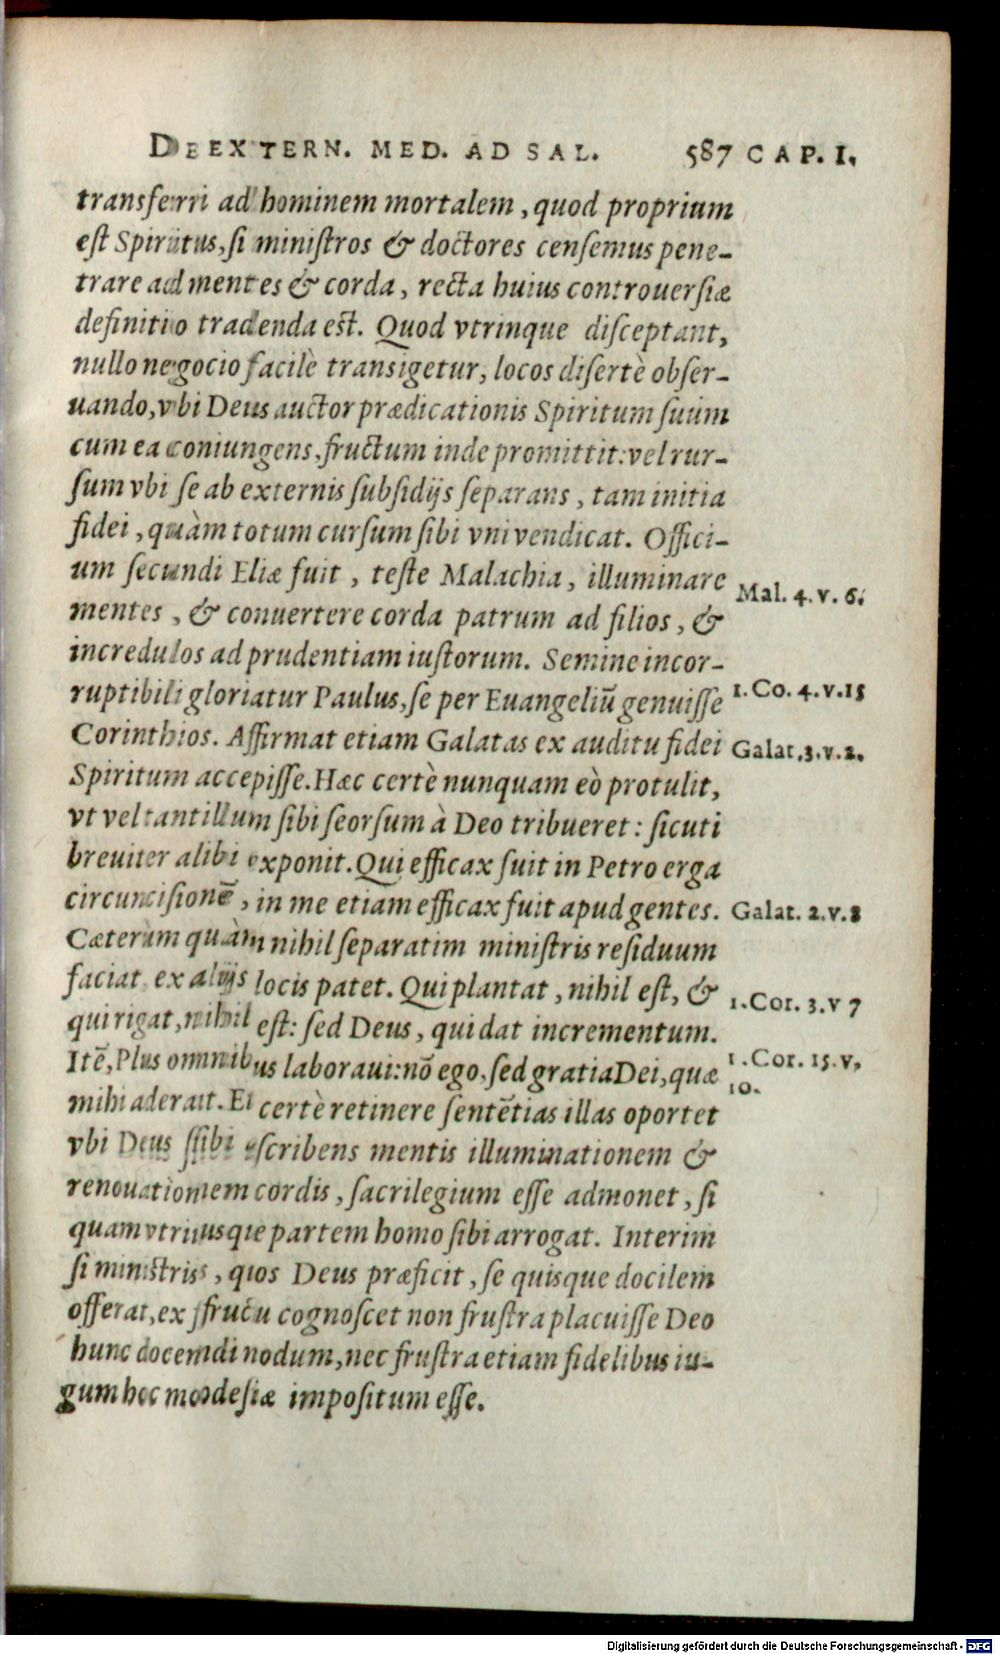 DE EXTERN. MED. AD SAL. 587 CAP. I.
transferri ad hominem mortalem, quod proprium
est Spiritus, si ministros & doctores censemus pene-
trare ad mentes & corda, recta huius controuersiæ
definitio tradenda est. Quod vtrinque disceptant,
nullo negocio facilè transigetur, locos disertè obser-
uando, vbi Deus auctor prædicationis Spiritum suum
cum ea coniungens, fructum inde promittit: vel rur-
sum vbi se ab externis subsidijs separans, tam initia
fidei, quàm totum cursum sibi vni vendicat. Offici-
um secundi Eliæ fuit, teste Malachia, illuminare
Mal. 4. v. 6.
mentes, & conuertere corda patrum ad filios, &
incredulos ad prudentiam iustorum. Semine incor-
ruptibili gloriatur Paulus, se per Euangeliũ genuisse
1. Co. 4. v. 15
Corinthios. Affirmat etiam Galatas ex auditu fidei
Galat. 3. v. 2.
Spiritum accepisse. Hæc certè nunquam eò protulit,
vt vel tantillum sibi seorsum à Deo tribueret: sicuti
breuiter alibi exponit. Qui efficax fuit in Petro erga
circuncisionẽ, in me etiam efficax fuit apud gentes.
Galat. 2. v. 8
Cæterùm quàm nihil separatim ministris residuum
faciat, ex alijs locis patet. Qui plantat, nihil est, &
1. Cor. 3. v 7
qui rigat, nihil est: sed Deus, qui dat incrementum.
Itẽ, Plus omnibus laboraui: nõ ego, sed gratia Dei, quæ
1. Cor. 15. v.
10.
mihi aderat. Et certè retinere sentẽtias illas oportet
vbi Deus sibi ascribens mentis illuminationem &
renouationem cordis, sacrilegium esse admonet, si
quam vtriusque partem homo sibi arrogat. Interim
si ministris, quos Deus præficit, se quisque docilem
offerat, ex fructu cognoscet non frustra placuisse Deo
hunc docendi modum, nec frustra etiam fidelibus iu-
gum hoc modestiæ impositum esse.
Digitalisierung gefördert durch die Deutsche Forschungsgemeinschaft - DFG